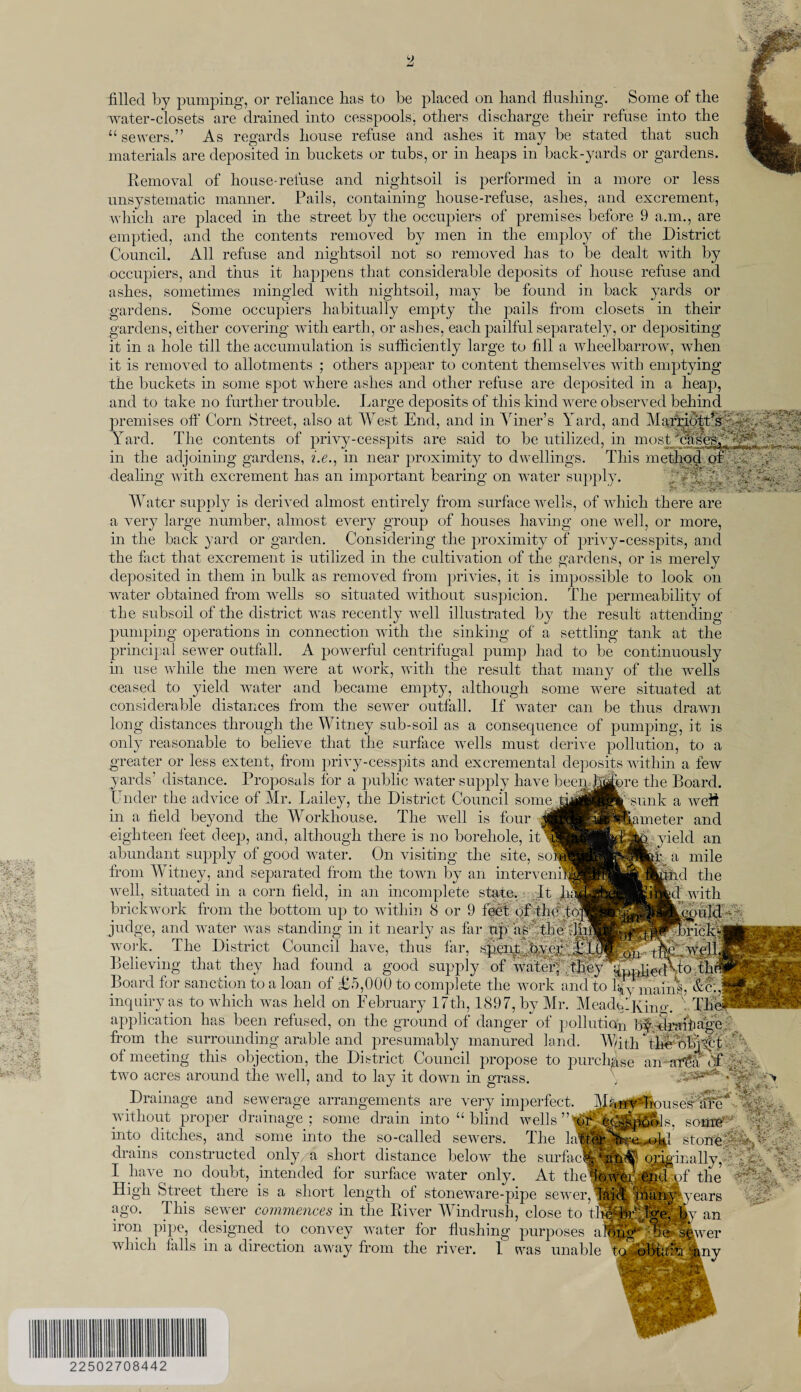 2
filled by pumping, or reliance has to be placed on hand flushing. Some of the
water-closets are drained into cesspools, others discharge their refuse into the
“sewers.” As regards house refuse and ashes it may be stated that such
materials are deposited in buckets or tubs, or in heaps in back-yards or gardens.
Removal of house-refuse and nightsoil is performed in a more or less
unsystematic manner. Pails, containing house-refuse, ashes, and excrement,
which are placed in the street by the occupiers of premises before 9 a.m., are
emptied, and the contents removed by men in the employ of the District
Council. All refuse and nightsoil not so removed has to be dealt with by
occupiers, and thus it happens that considerable deposits of house refuse and
ashes, sometimes mingled with nightsoil, may be found in back yards or
gardens. Some occupiers habitually empty the pails from closets in their
gardens, either covering with earth, or ashes, each pailful separately, or depositing
it in a hole till the accumulation is sufficiently large to fill a wheelbarrow, when
it is removed to allotments ; others appear to content themselves with emptying
the buckets in some spot where ashes and other refuse are deposited in a heap,
and to take no further trouble. Large deposits of this kind were observed behind
premises off Corn Street, also at West End, and in Viner’s Yard, and Marriott’s
Yard. The contents of privy-cesspits are said to be utilized, in most cases,
in the adjoining gardens, i.e., in near proximity to dwellings. This method of
dealing with excrement has an important bearing on water supply.
Water supply is derived almost entirely from surface wells, of which there are
a very large number, almost every group of houses having one well, or more,
in the back yard or garden. Considering the proximity of privy-cesspits, and
the fact that excrement is utilized in the cultivation of the gardens, or is merely
deposited in them in bulk as removed from privies, it is impossible to look on
water obtained from wells so situated without suspicion. The permeability of
the subsoil of the district was recently well illustrated by the result attending
pumping operations in connection with the sinking of a settling tank at the
principal sewer outfall. A powerful centrifugal pump had to be continuously
in use while the men were at work, with the result that many of the wells
ceased to yield water and became empty, although some were situated at
considerable distances from the sewer outfall. If water can be thus drawn
long distances through the Witney sub-soil as a consequence of pumping, it is
only reasonable to believe that the surface wells must derive pollution, to a
greater or less extent, from privy-cesspits and excremental deposits within a few
yards’ distance. Proposals for a public water supply have been before the Board.
Under the advice of Mr. Lailey, the District Council some sunk a well
in a field beyond the Workhouse. The well is four diameter and
eighteen feet deep, and, although there is no borehole, it yield an
abundant supply of good water. On visiting the site, a mile
from Witney, and separated from the town by an and the
well, situated in a corn field, in an incomplete state. It with
brickwork from the bottom up to within 8 or 9 feet of the could
judge, and water was standing in it nearly as far up as the brick-
work. The District Council have, thus far, spent over on the well.
Believing that they had found a good supply of water, they applied to the
Board for sanction to a loan of £5,000 to complete the work and to lay mains, &c.,
inquiry as to which was held on February 17th, 1897, by Mr. Meade-King. The
application has been refused, on the ground of danger of pollution by drainage
from the surrounding arable and presumably manured land. With the object
of meeting this objection, the District Council propose to purchase an area of
two acres around the well, and to lay it down in grass.
Drainage and sewerage arrangements are very imperfect. Many houses are
without proper drainage ; some drain into “blind wells” or cesspools, some
into ditches, and some into the so-called sewers. The old stone
drains constructed only a short distance below the originally,
I have no doubt, intended for surface water only. At the lower end of the
High Street there is a short length of stoneware-pipe sewer, laid many years
ago. This sewer commences in the River Windrush, close to by an
iron pipe, designed to convey water for flushing purposes along the sewer
which falls in a direction away from the river. I was unable to obtain any
22502708442